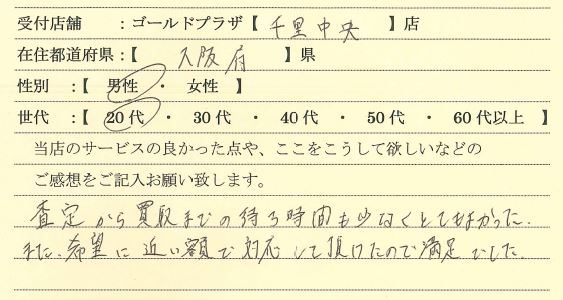 受付店舗　：ゴールドプラザ【 千里中央 】店
在住都道府県：【 大阪府 】県
性別　：【　男性　・　女性　】
世代　：【　20代　・　30代　・　40代　・　50代　・　60代以上　】
当店のサービスの良かった点や、ここをこうして欲しいなどの
ご感想をご記入お願い致します。
査定から買取までの待ち時間も少なくとてもよかった。
また、希望に近い額で対応して頂けたので満足でした。